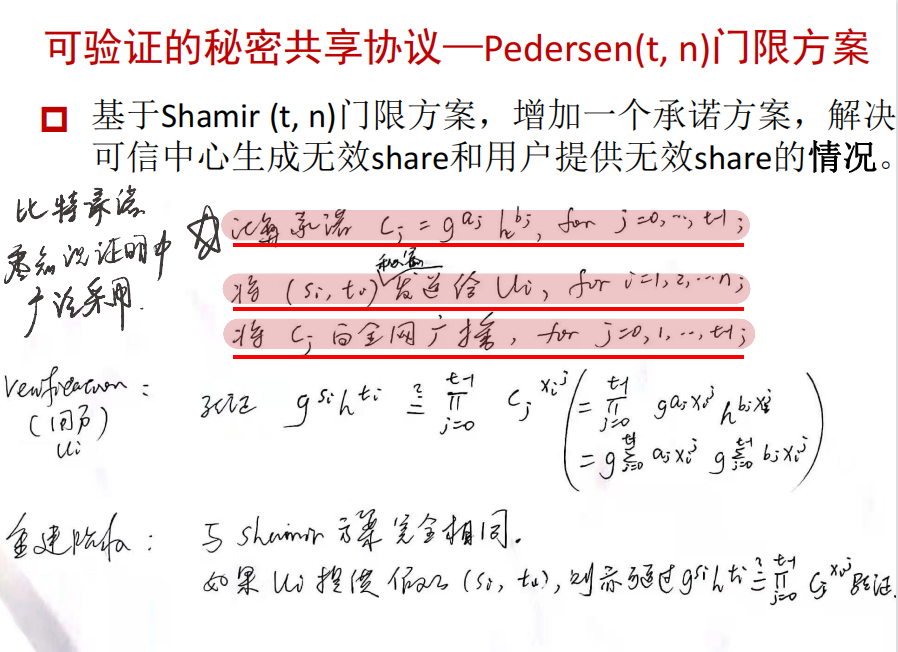 可验证的秘密共享协议—Pedersen(t, n)门限方案
基于Shamir (t, n)门限方案，增加一个承诺方案，解决
可信中心生成无效share和用户提供无效share的情况。
比特承诺
零知识证明中
广泛采用.
计算承诺 C_j = g^{a_j} h^{b_j}, for j=0,…,t-1;
秘密
将 (s_i, t_i) 发送给 U_i, for i=1,2,…n;
将 C_j 向全网广播, for j=0,1,…,t-1;
Verification:
(用户)
U_i
验证 g^{s_i} h^{t_i} ≟ ∏_{j=0}^{t-1} C_j^{x_i^j} (= ∏_{j=0}^{t-1} g^{a_j x_i^j} h^{b_j x_i^j}
= g^{∑_{j=0}^{t-1} a_j x_i^j} g^{∑_{j=0}^{t-1} b_j x_i^j})
重建阶段: 与Shamir方案完全相同.
如果 U_i 提供 (s_i, t_i), 则 通过 g^{s_i} h^{t_i} ≟ ∏_{j=0}^{t-1} C_j^{x_i^j} 验证.